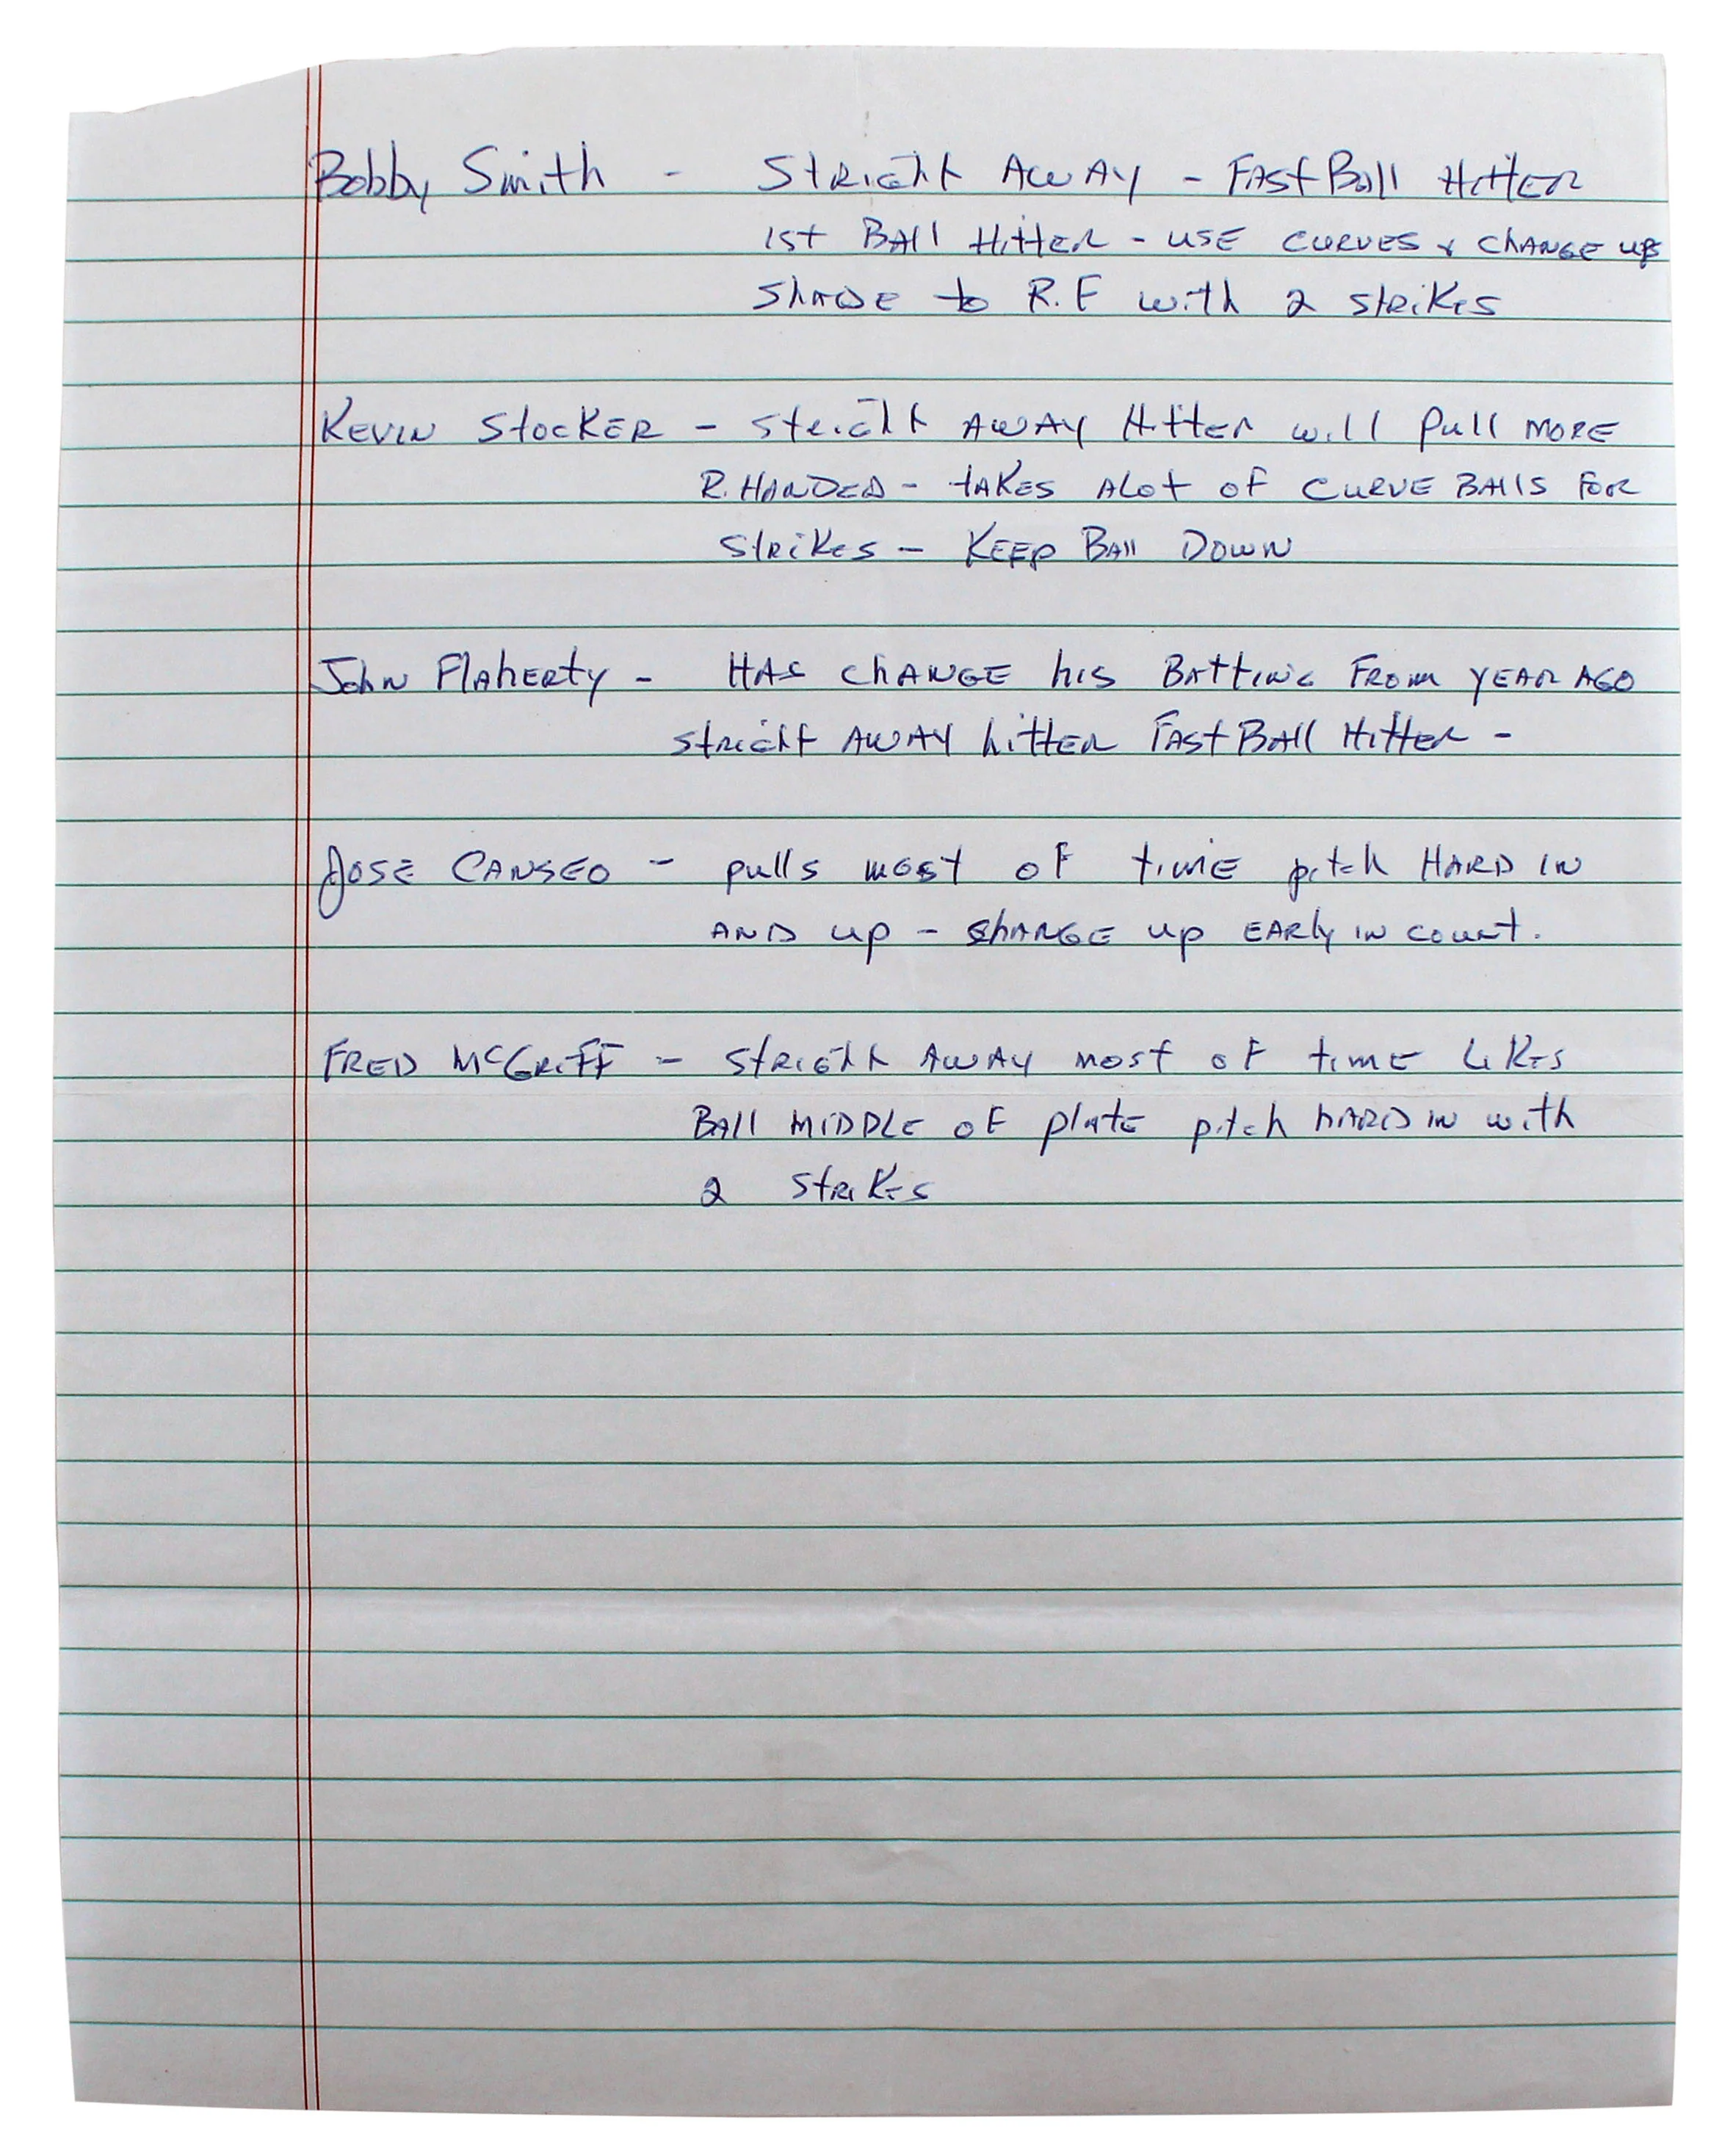 Bobby Smith - Stright Away - Fast Ball Hitter
1st Ball Hitter - use curves & change ups
Shade to R.F with 2 strikes
Kevin Stocker - Stright Away Hitter will pull more
R. Handed - takes alot of curve balls for
strikes - Keep Ball Down
John Flaherty - Has change his Batting from year ago
stright away hitter Fast Ball Hitter -
Jose Canseo - pulls most of time pitch hard in
and up - change up early in count.
Fred McGriff - stright away most of time likes
Ball middle of plate pitch hard in with
2 strikes